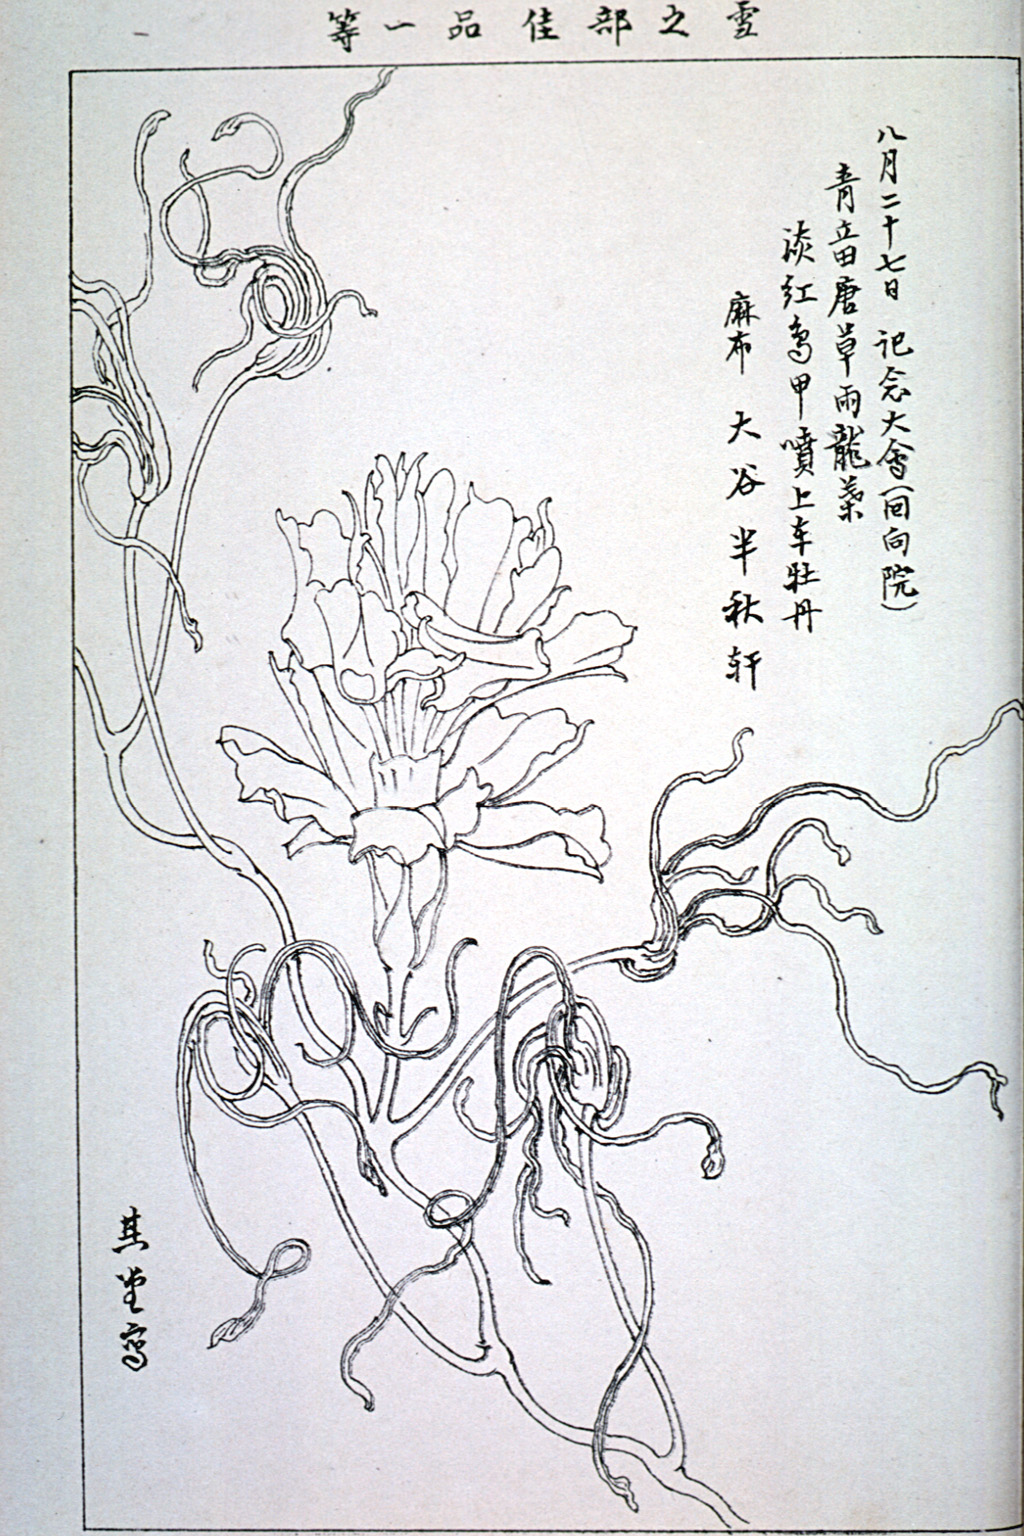 雪之部佳品一等
八月二十七日 記念大會(回向院)
青畨唐草雨龍葉
淡紅鳥甲噴上車牡丹
麻布 大谷半秋軒
其堂寫